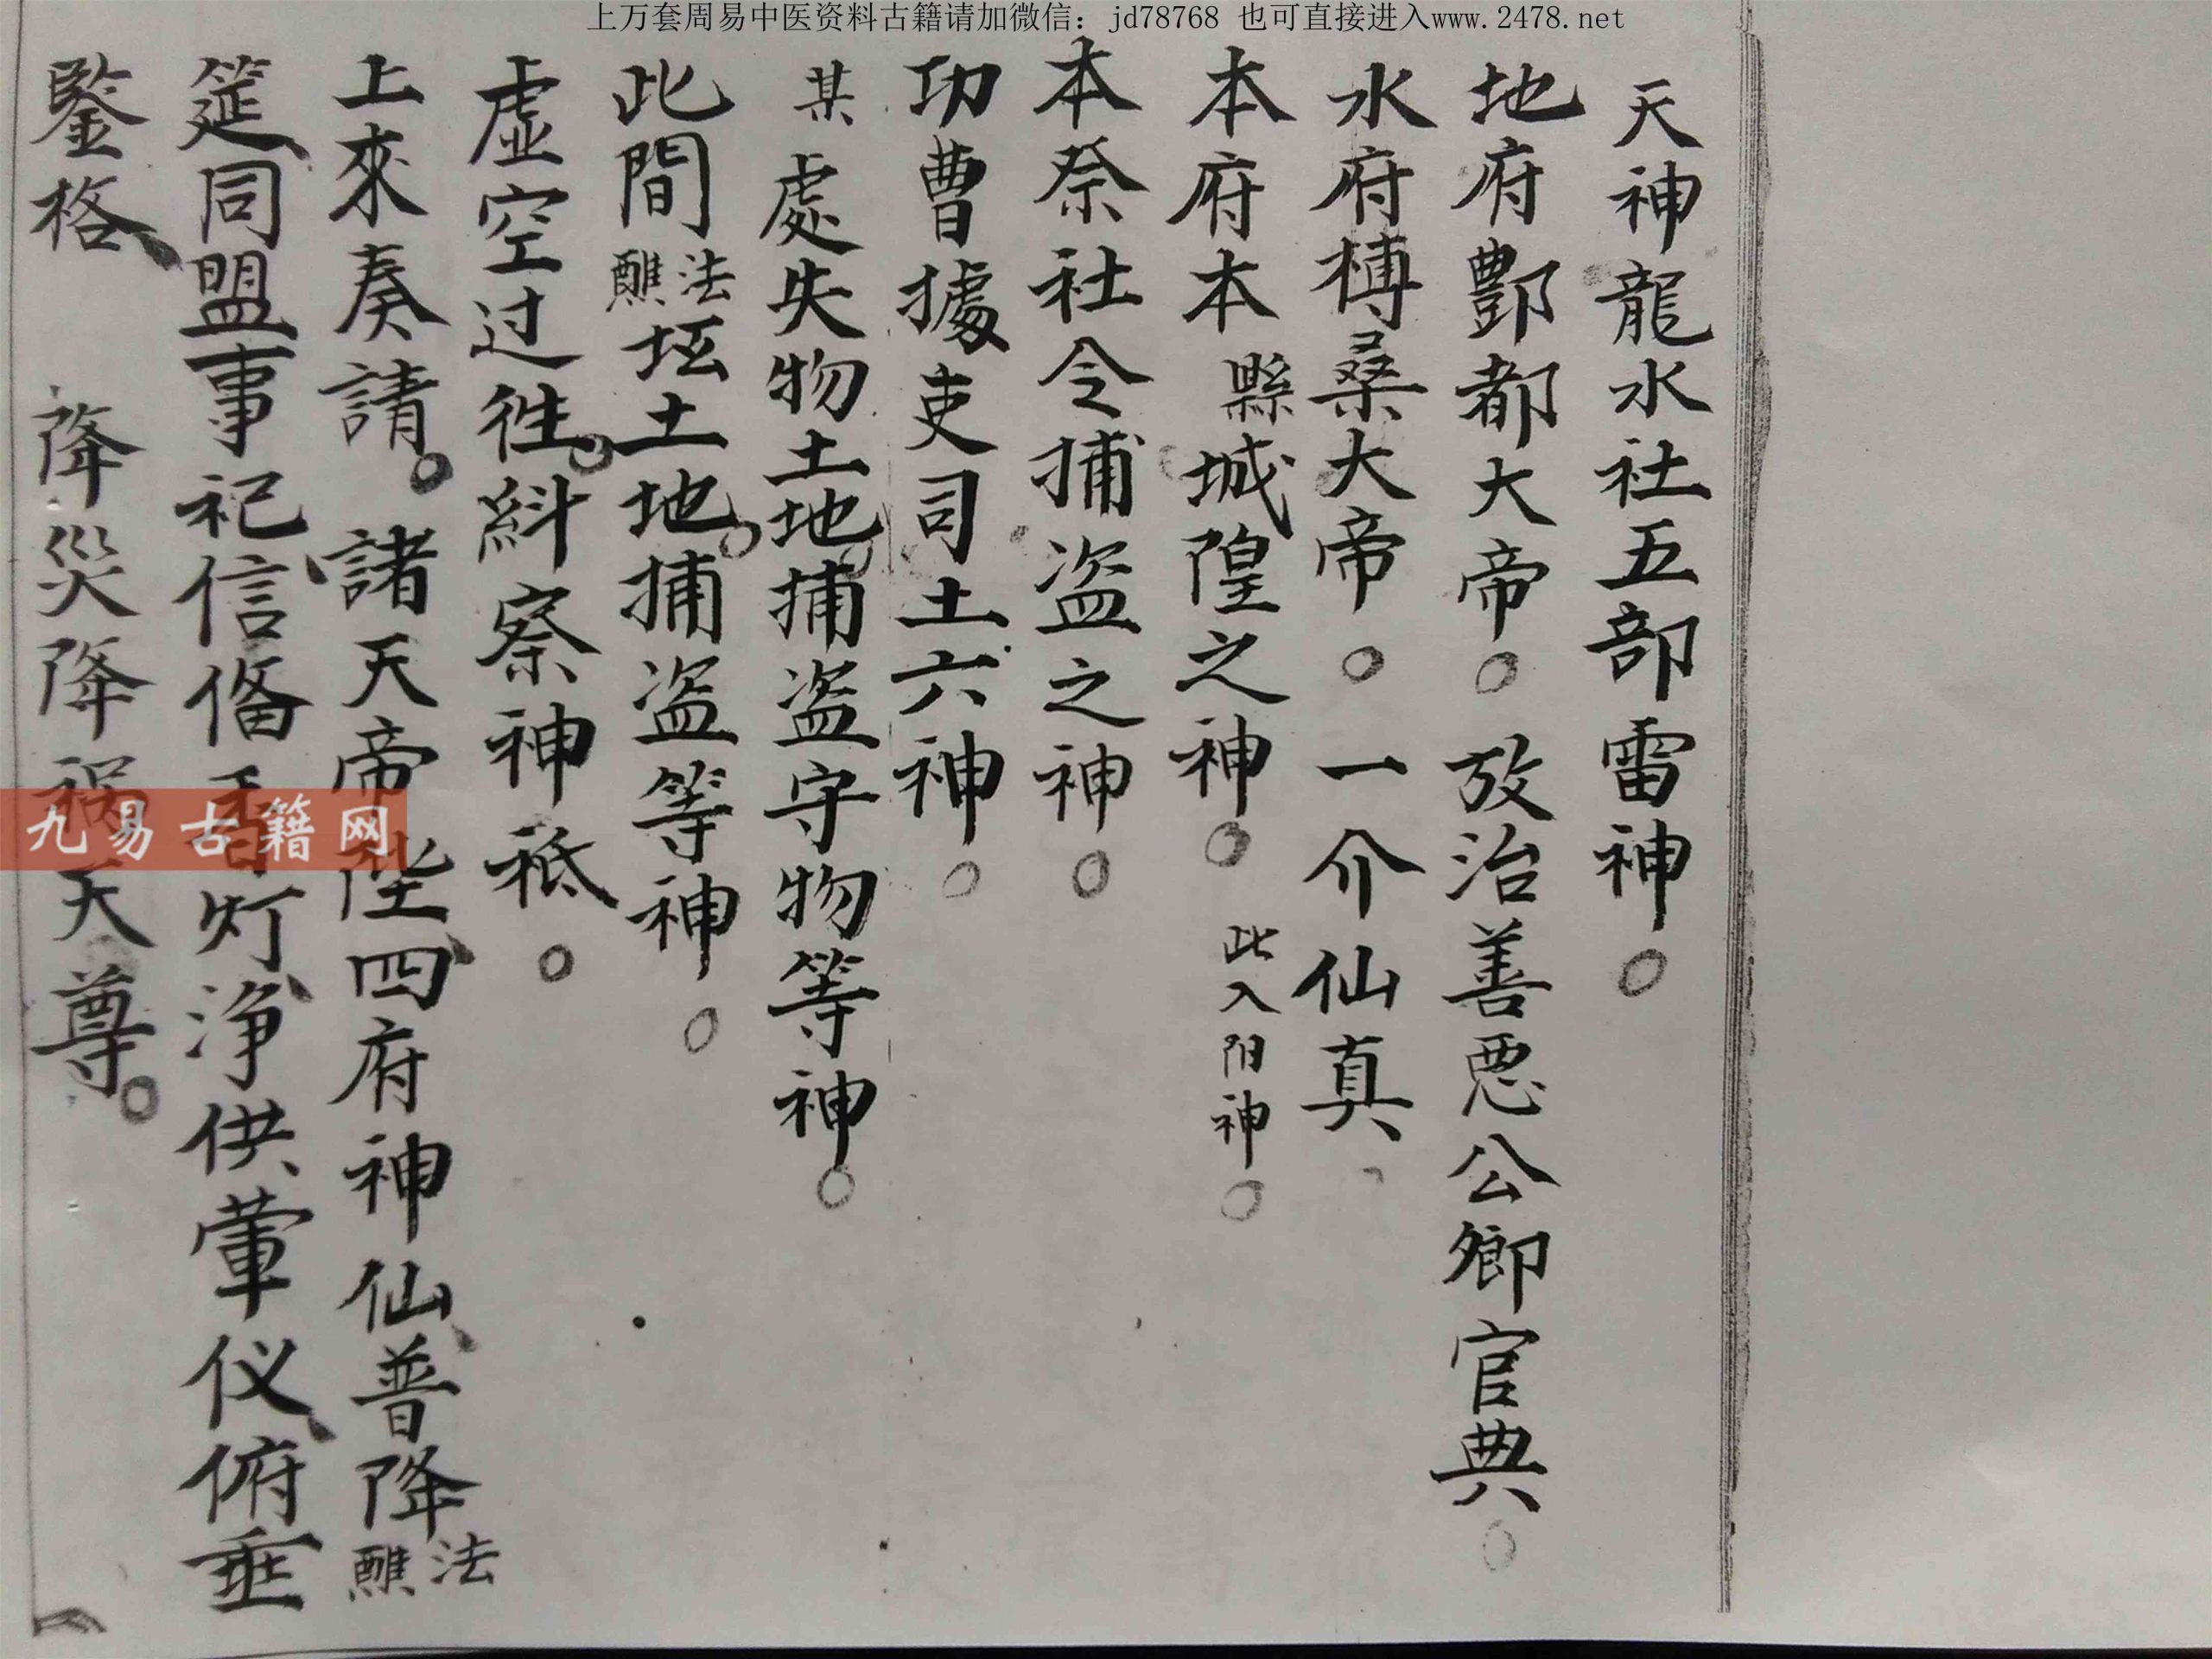 上万套周易中医资料古籍请加微信：jd78768 也可直接进入www.2478.net
天神龍水社五部雷神。
地府酆都大帝。放治善悪公卿官典。
水府榑桑大帝。一介仙真、
本府本縣城隍之神。此入阳神。
本祭社令捕盗之神。
功曹據吏司土六神。
某處失物土地捕盗守物等神。
此間法醮坛土地捕盗等神。
虛空过徃。糾察神祇。
上來奏請。諸天帝陛四府神仙普降法醮
筵同盟事祀信俻香灯净供葷仪俯垂
鑒格 降災降禍天尊。
九易古籍网